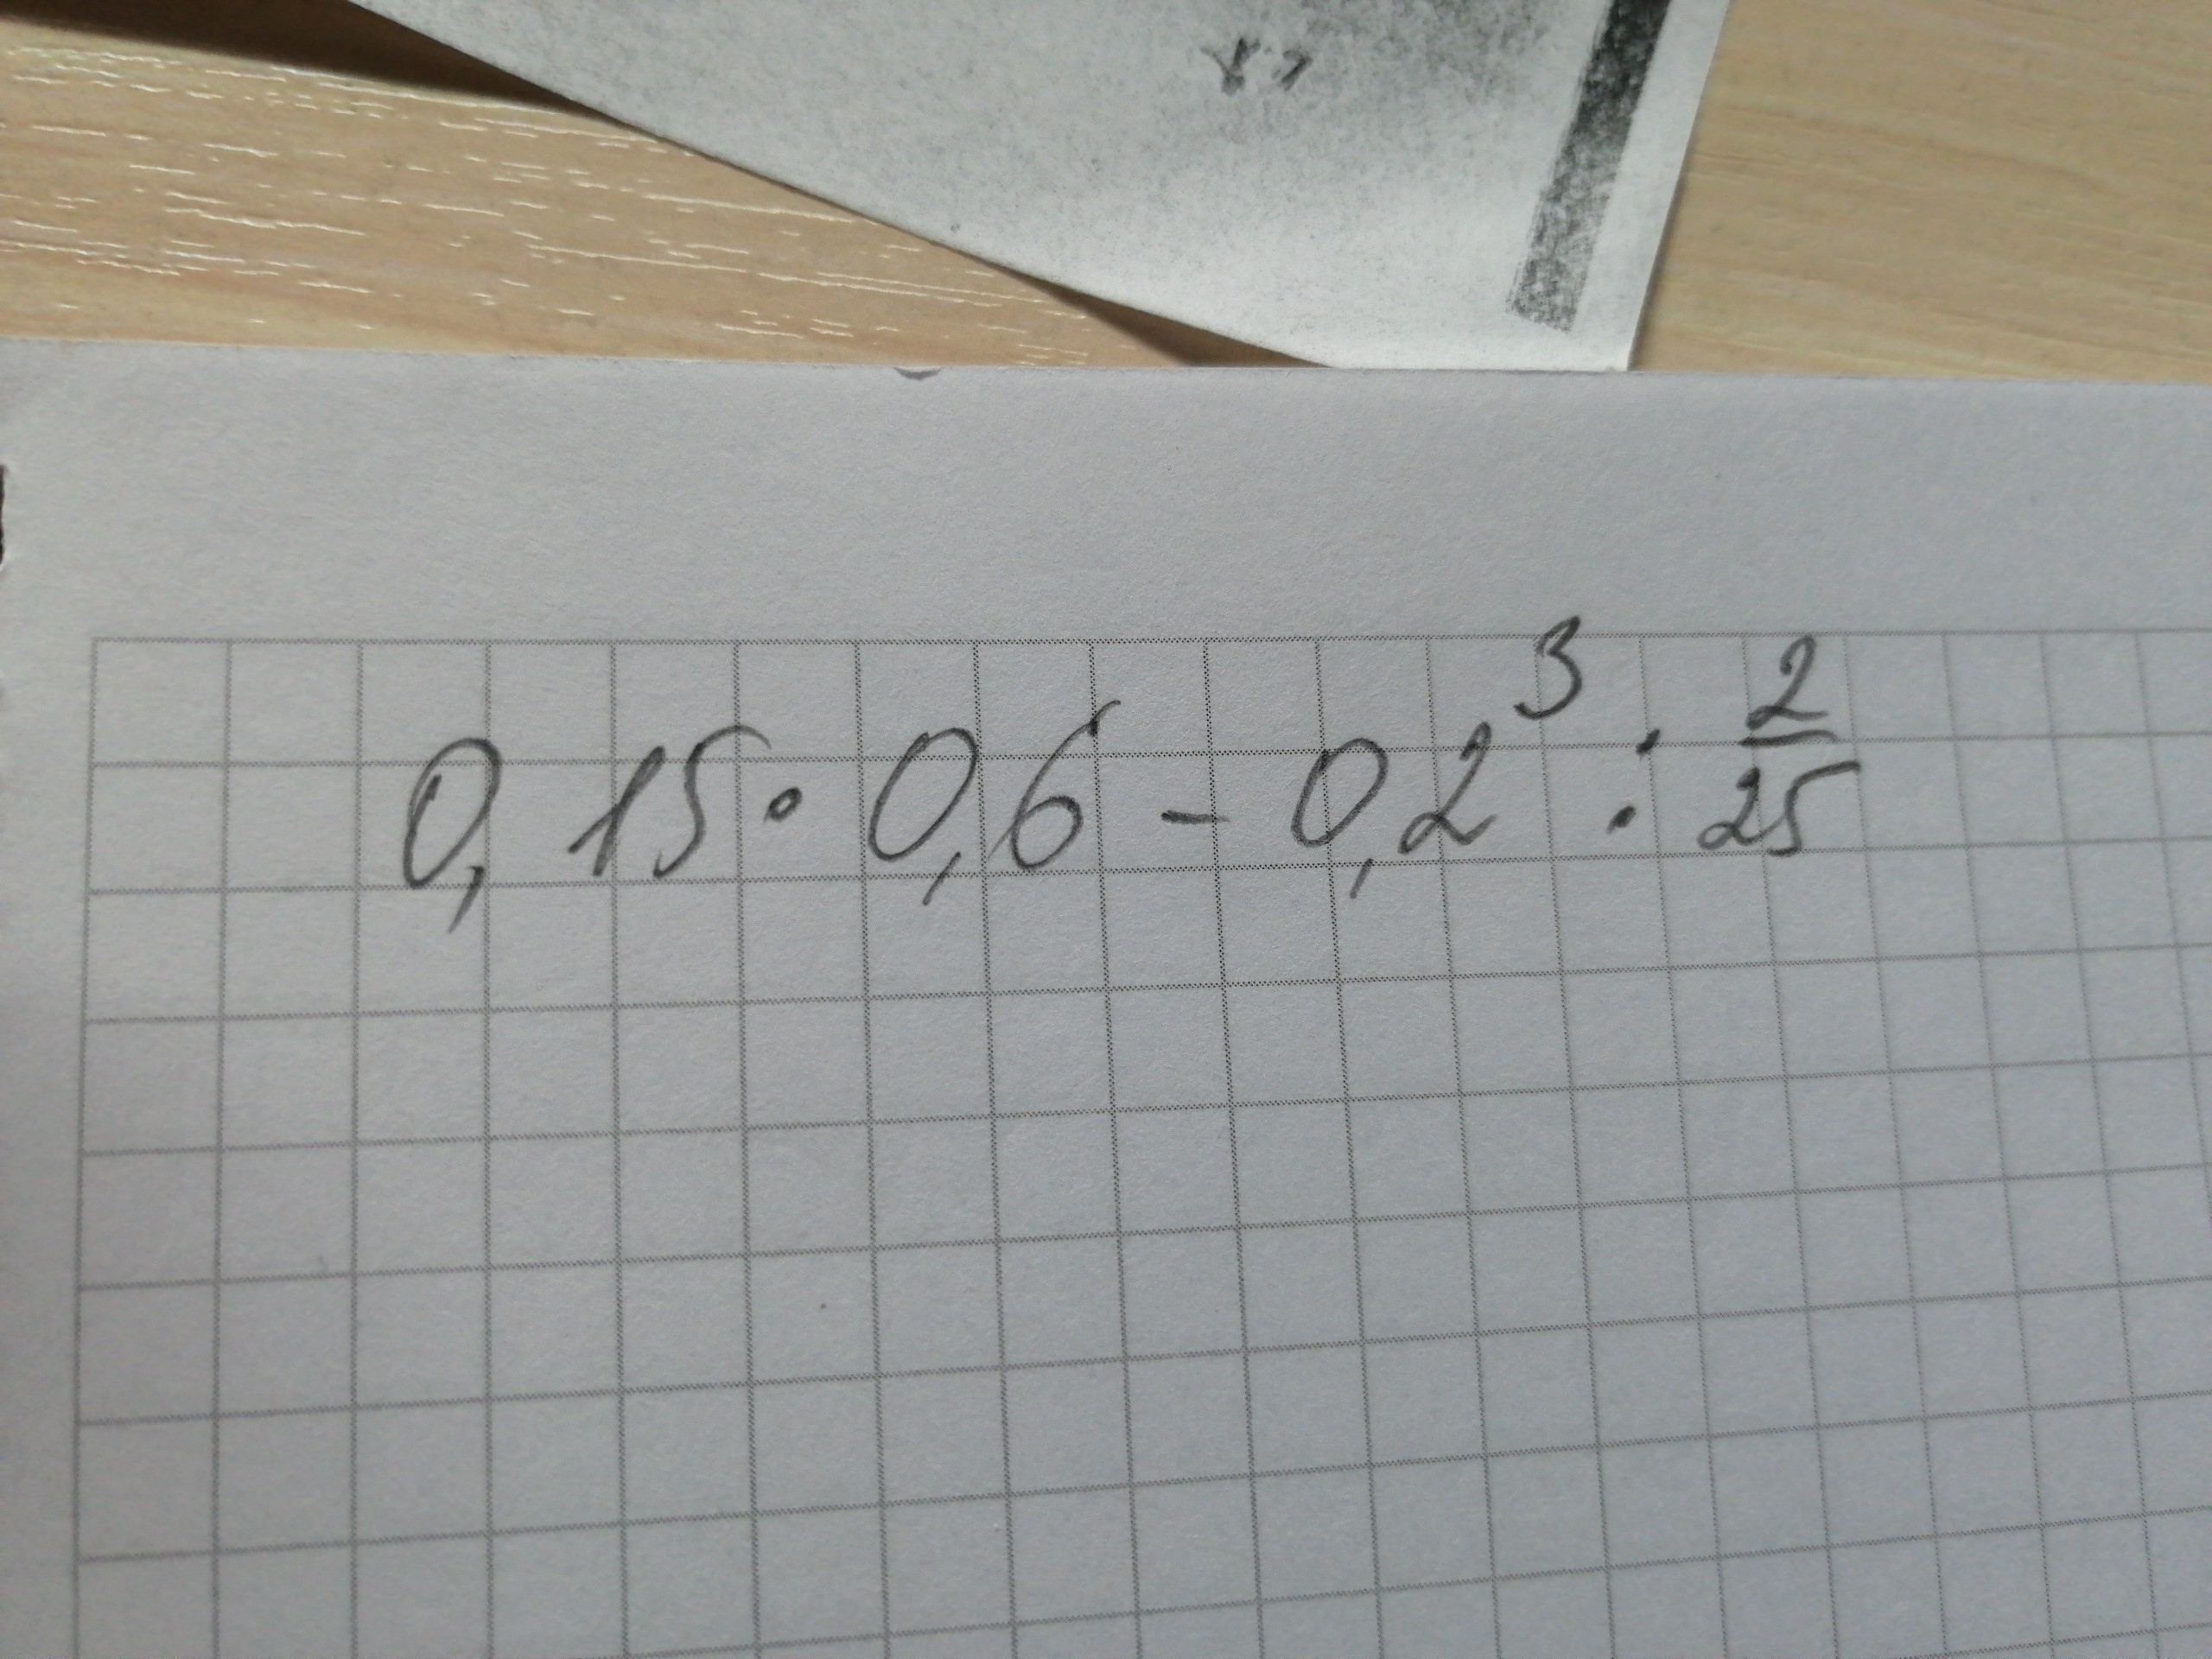 0,15·0,6 - 0,2³ : 2/25